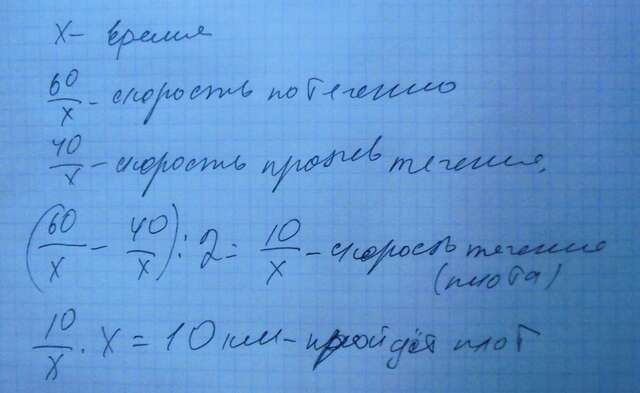 x - время
60/x - скорость по течению
40/x - скорость против течения.
(60/x - 40/x) : 2 = 10/x - скорость течения
(плота)
10/x · x = 10 км - пройдёт плот